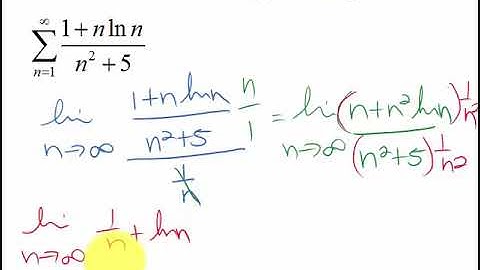 ∞
∑ (1 + n ln n)/(n² + 5)
n=1
lim n→∞ ((1+n ln n)/(n²+5))/(1/n) · n/1 = lim n→∞ ((n+n² ln n) 1/n²)/((n²+5) 1/n²)
lim n→∞ 1/n + ln n